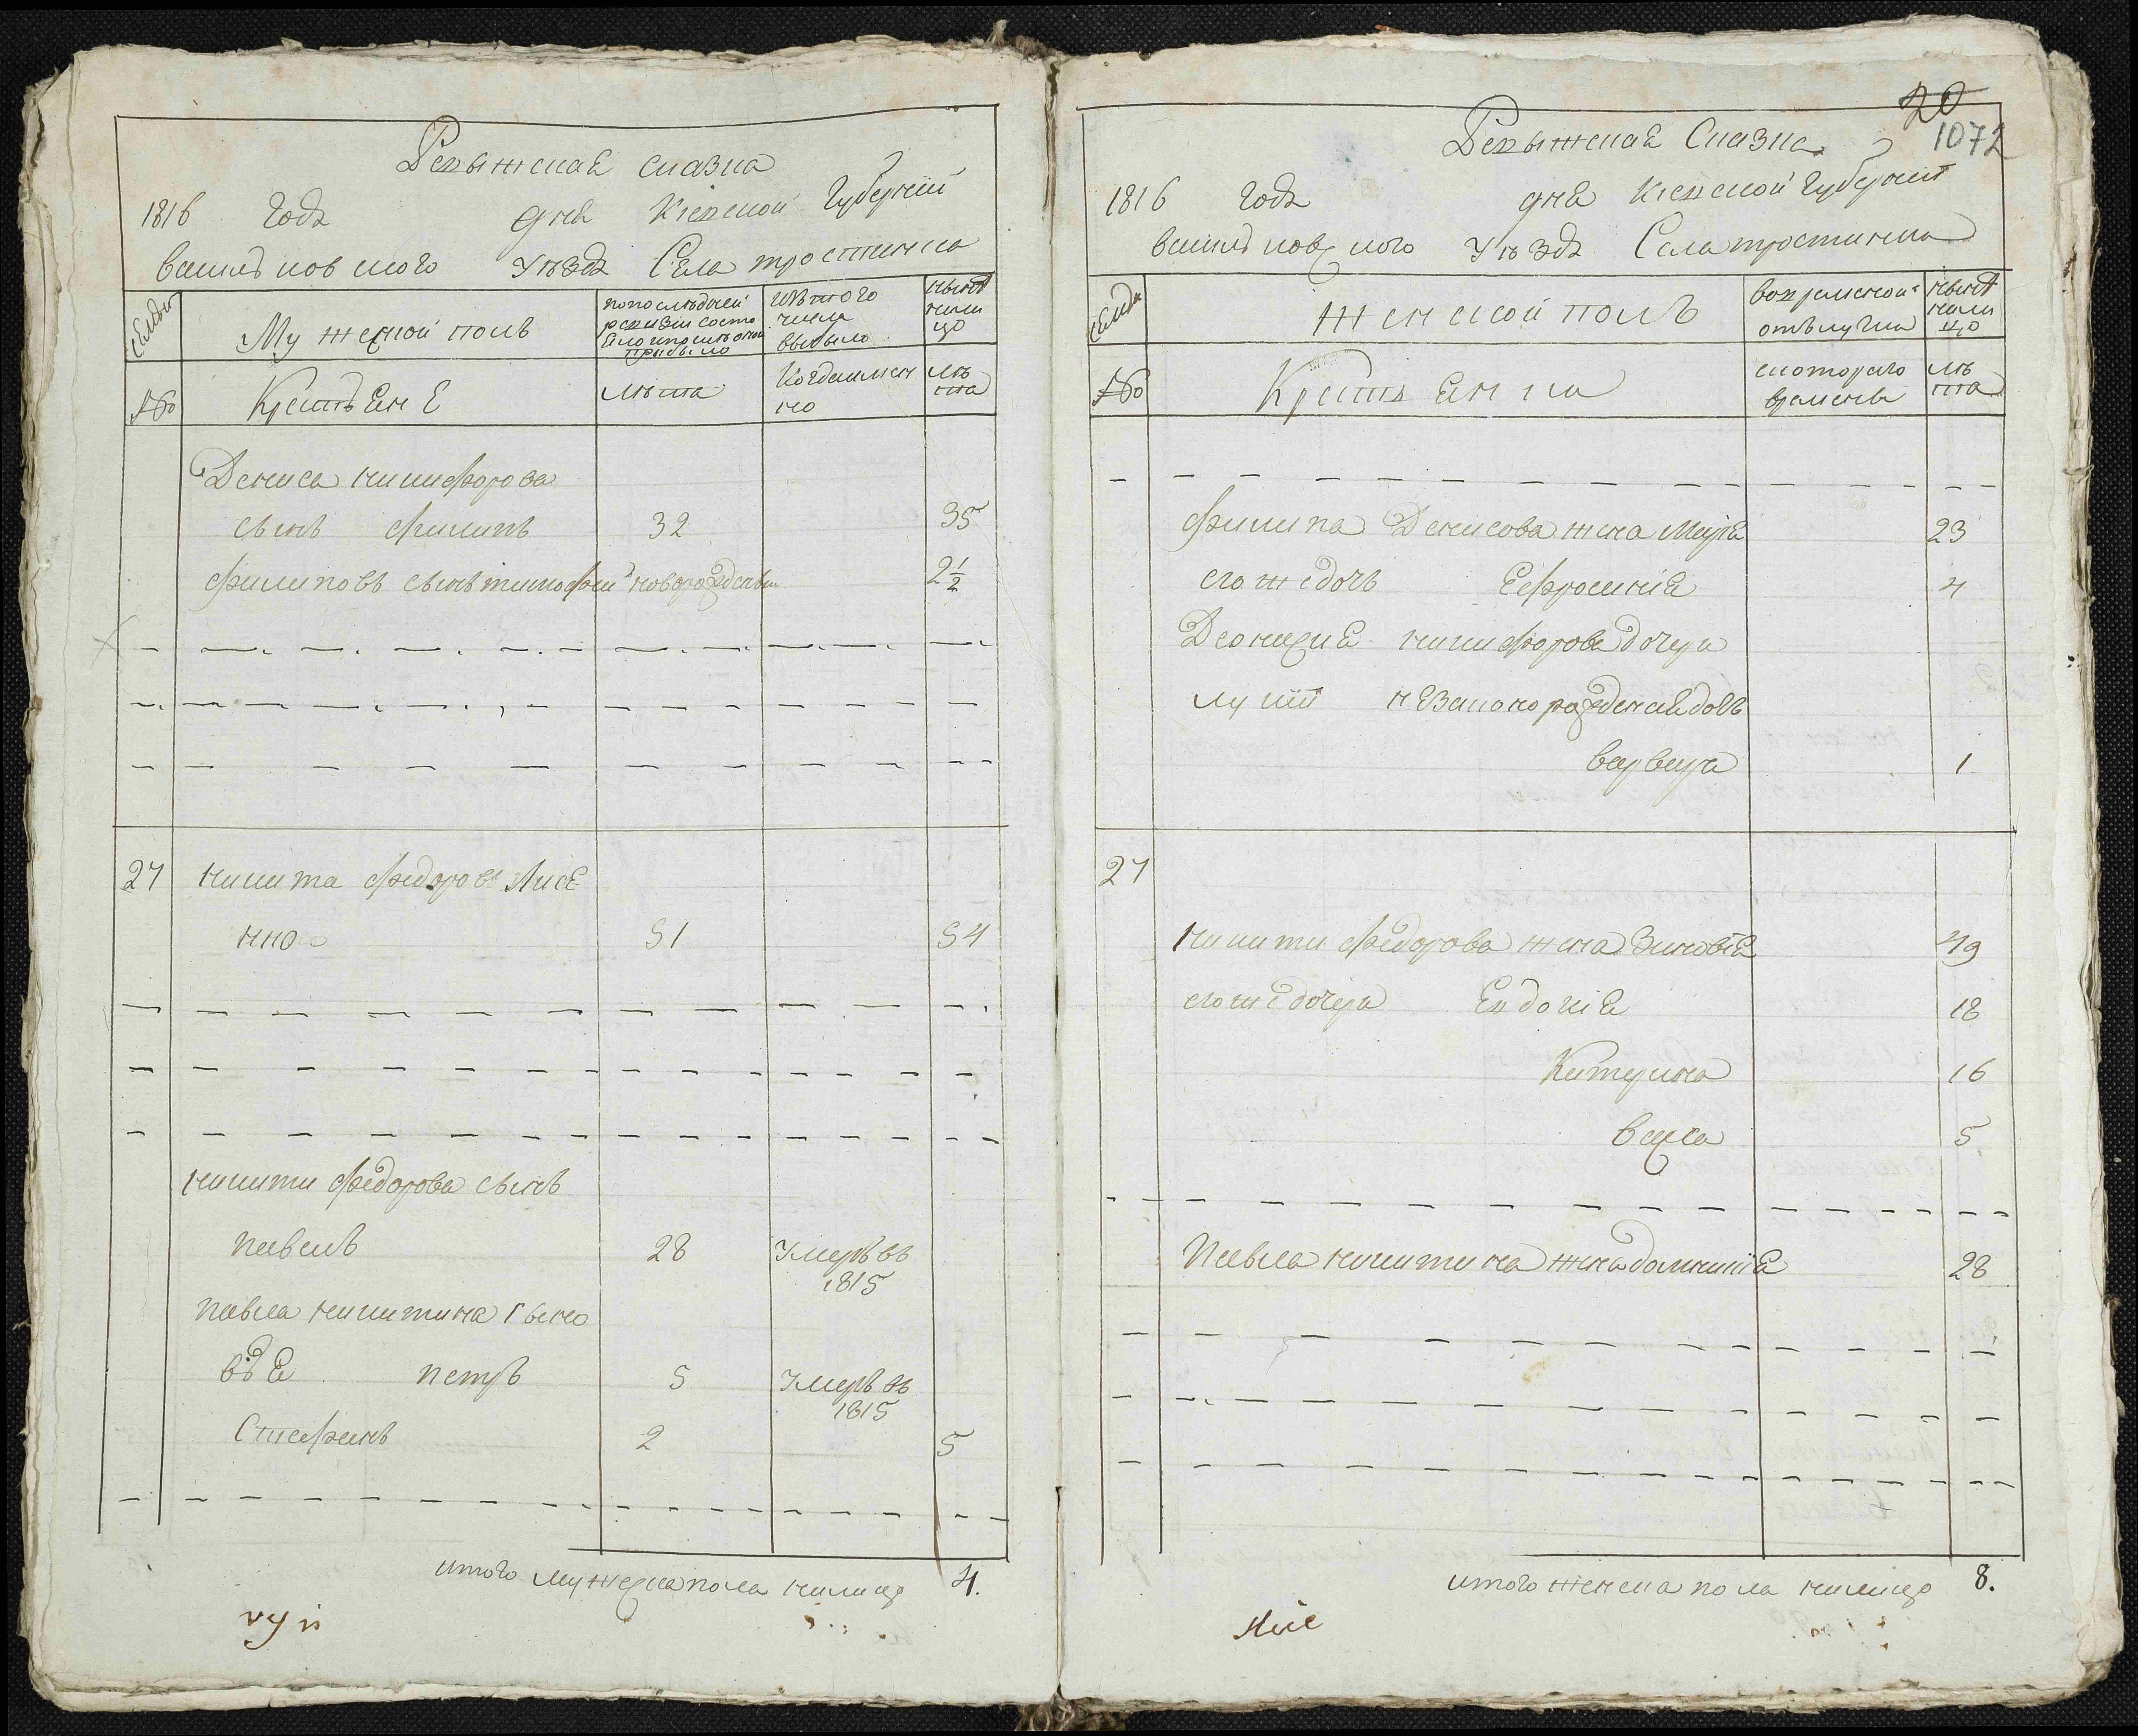 Ревыжская сказка
1816 Года дня Кіевской Губерніи
васильковского Уъзда Села тростинка
Семьи
Мужеской полъ
по последней
ревизии состо
яло и после оной
прибыло
изъ того
числа
выбыло
ныне
нали
цо
№
Крестьяне
лъта
Когда имен
но
лъ
та
Дениса никифорова
сынъ филипъ 32 35
филиповъ сынъ тимофей новорожденъ 2 1/2
27 никита федоровъ Лисе
нко 51 54
никити федорова сынъ
павелъ 28 Умеръ въ
1815
павла никитина сыно
вья петръ 5 Умеръ въ
1815
Стефанъ 2 5
итого мужеска пола налицо 4.
20
1072
Ревыжская Сказка
1816 Года дня Кіевской Губерніи
васильковского Уъзда Села тростинка
Семьи
Женской полъ
во временой
отълучки
ныне
нали
цо
№
Крестьянка
с которого
времени
лъ
та
филипа Денисова жена Марія 23
его же дочь Ефросинія 4
никифорова дочери
дочь
варвара 1
27
никити федорова жена Зиновія 49
его же дочери Евдокія 18
Катерина 16
васса 5
Павла никитина жена домникія 28
итого женска пола налицо 8.